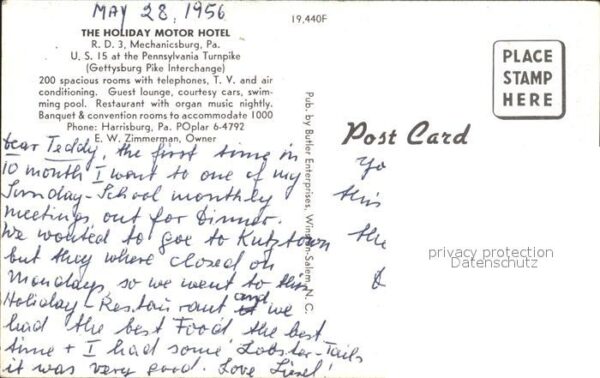 MAY 28, 1956
19,440F
THE HOLIDAY MOTOR HOTEL
R. D. 3, Mechanicsburg, Pa.
U. S. 15 at the Pennsylvania Turnpike
(Gettysburg Pike Interchange)
200 spacious rooms with telephones, T. V. and air
conditioning. Guest lounge, courtesy cars, swim-
ming pool. Restaurant with organ music nightly.
Banquet & convention rooms to accommodate 1000
Phone: Harrisburg, Pa. POplar 6-4792
E. W. Zimmerman, Owner
Dear Teddy, the first time in
10 month I want to one of my
Sunday-School monthly
meetings out for Dinner.
We wanted to goe to Kutztown
but they where closed on
Mondays, so we went to this
Holiday-Restaurant and we
had the best Food the best
time + I had some Lobster-Tails
it was very good. Love Liesel!
Pub. by Butler Enterprises, Winston-Salem, N. C.
PLACE
STAMP
HERE
Post Card
Yo
this
the
privacy protection
Datenschutz